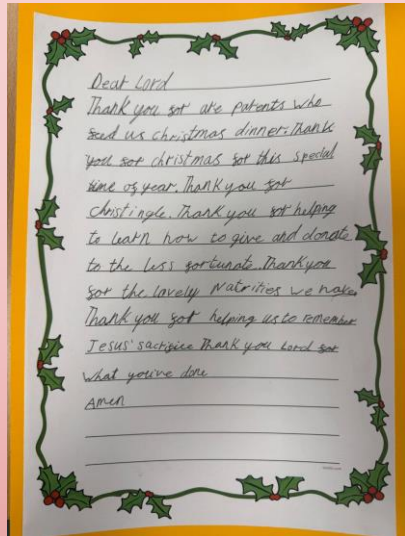 Dear Lord
Thank you for are parents who
feed us christmas dinner. Thank
you for christmas for this special
time of year. Thank you for
christingle. Thank you for helping
to learn how to give and donate
to the less fortunate. Thank you
for the lovely Nativities we make.
Thank you for helping us to remember
Jesus' sacrifice Thank you Lord for
what you've done
Amen